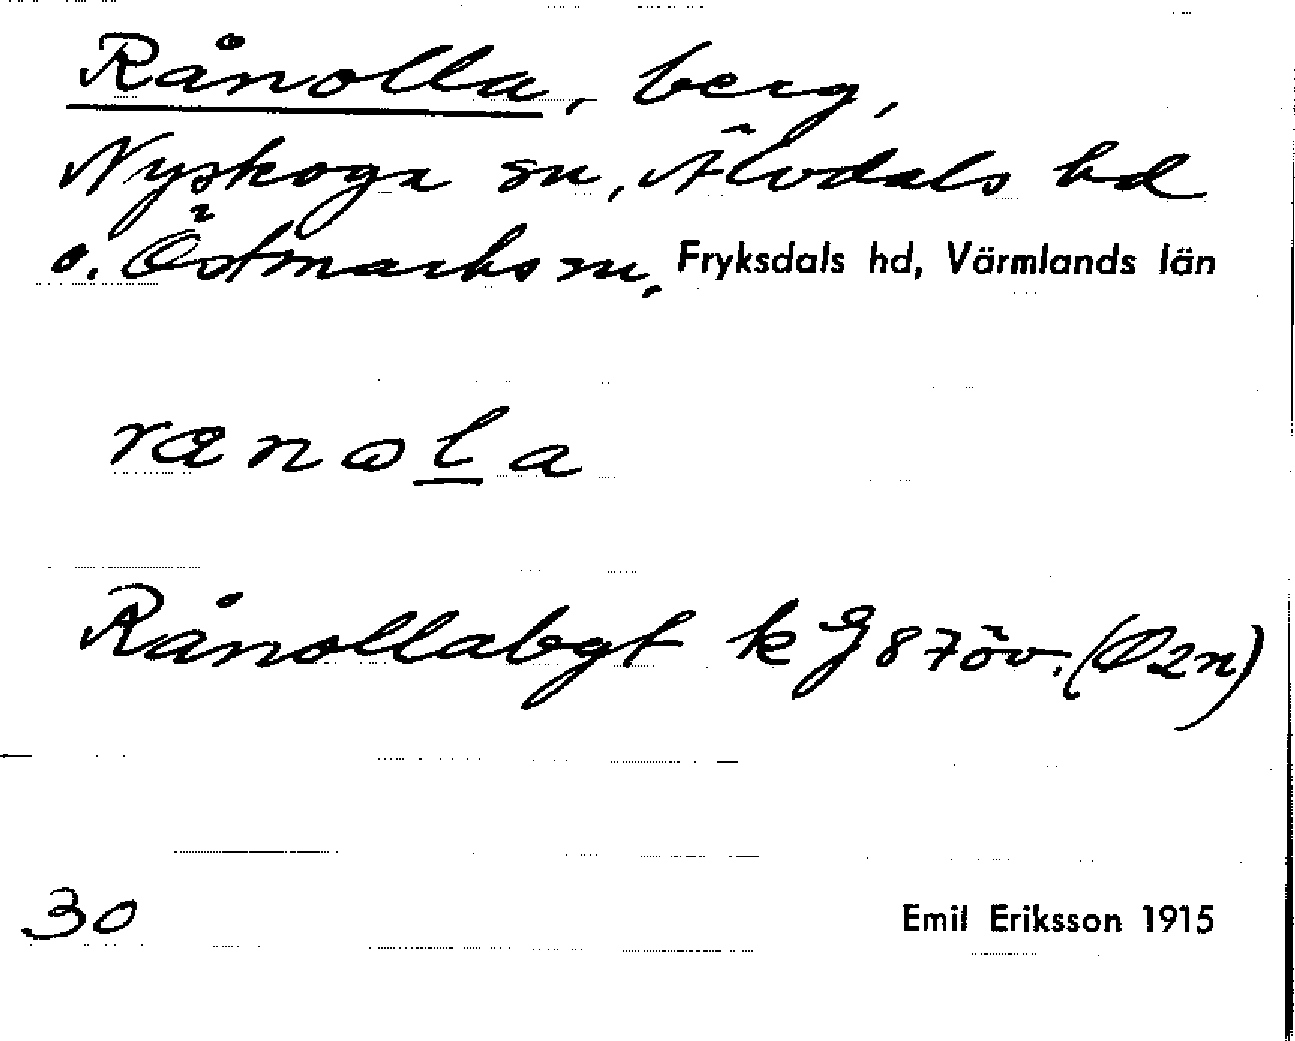 Rånolla, berg,
Nyskoga sn, Älvdals hd
o. Östmarks sn, Fryksdals hd, Värmlands län
rænola
Rånollabgt k J 87 öv. (Ø2n)
30
Emil Eriksson 1915